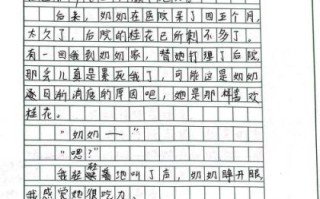 后来，奶奶在医院呆了四五个月，
太久了，后院的桂花已所剩不多了。
有一回我到奶奶家，替她打理了后院，
那会儿真是累死我了，可能这是奶奶
逐日渐消瘦的原因吧，她是那样喜欢
桂花。
"奶奶——"
"嗯？"
我轻轻着地叫了声，奶奶睁开眼，
我感觉她很吃力。